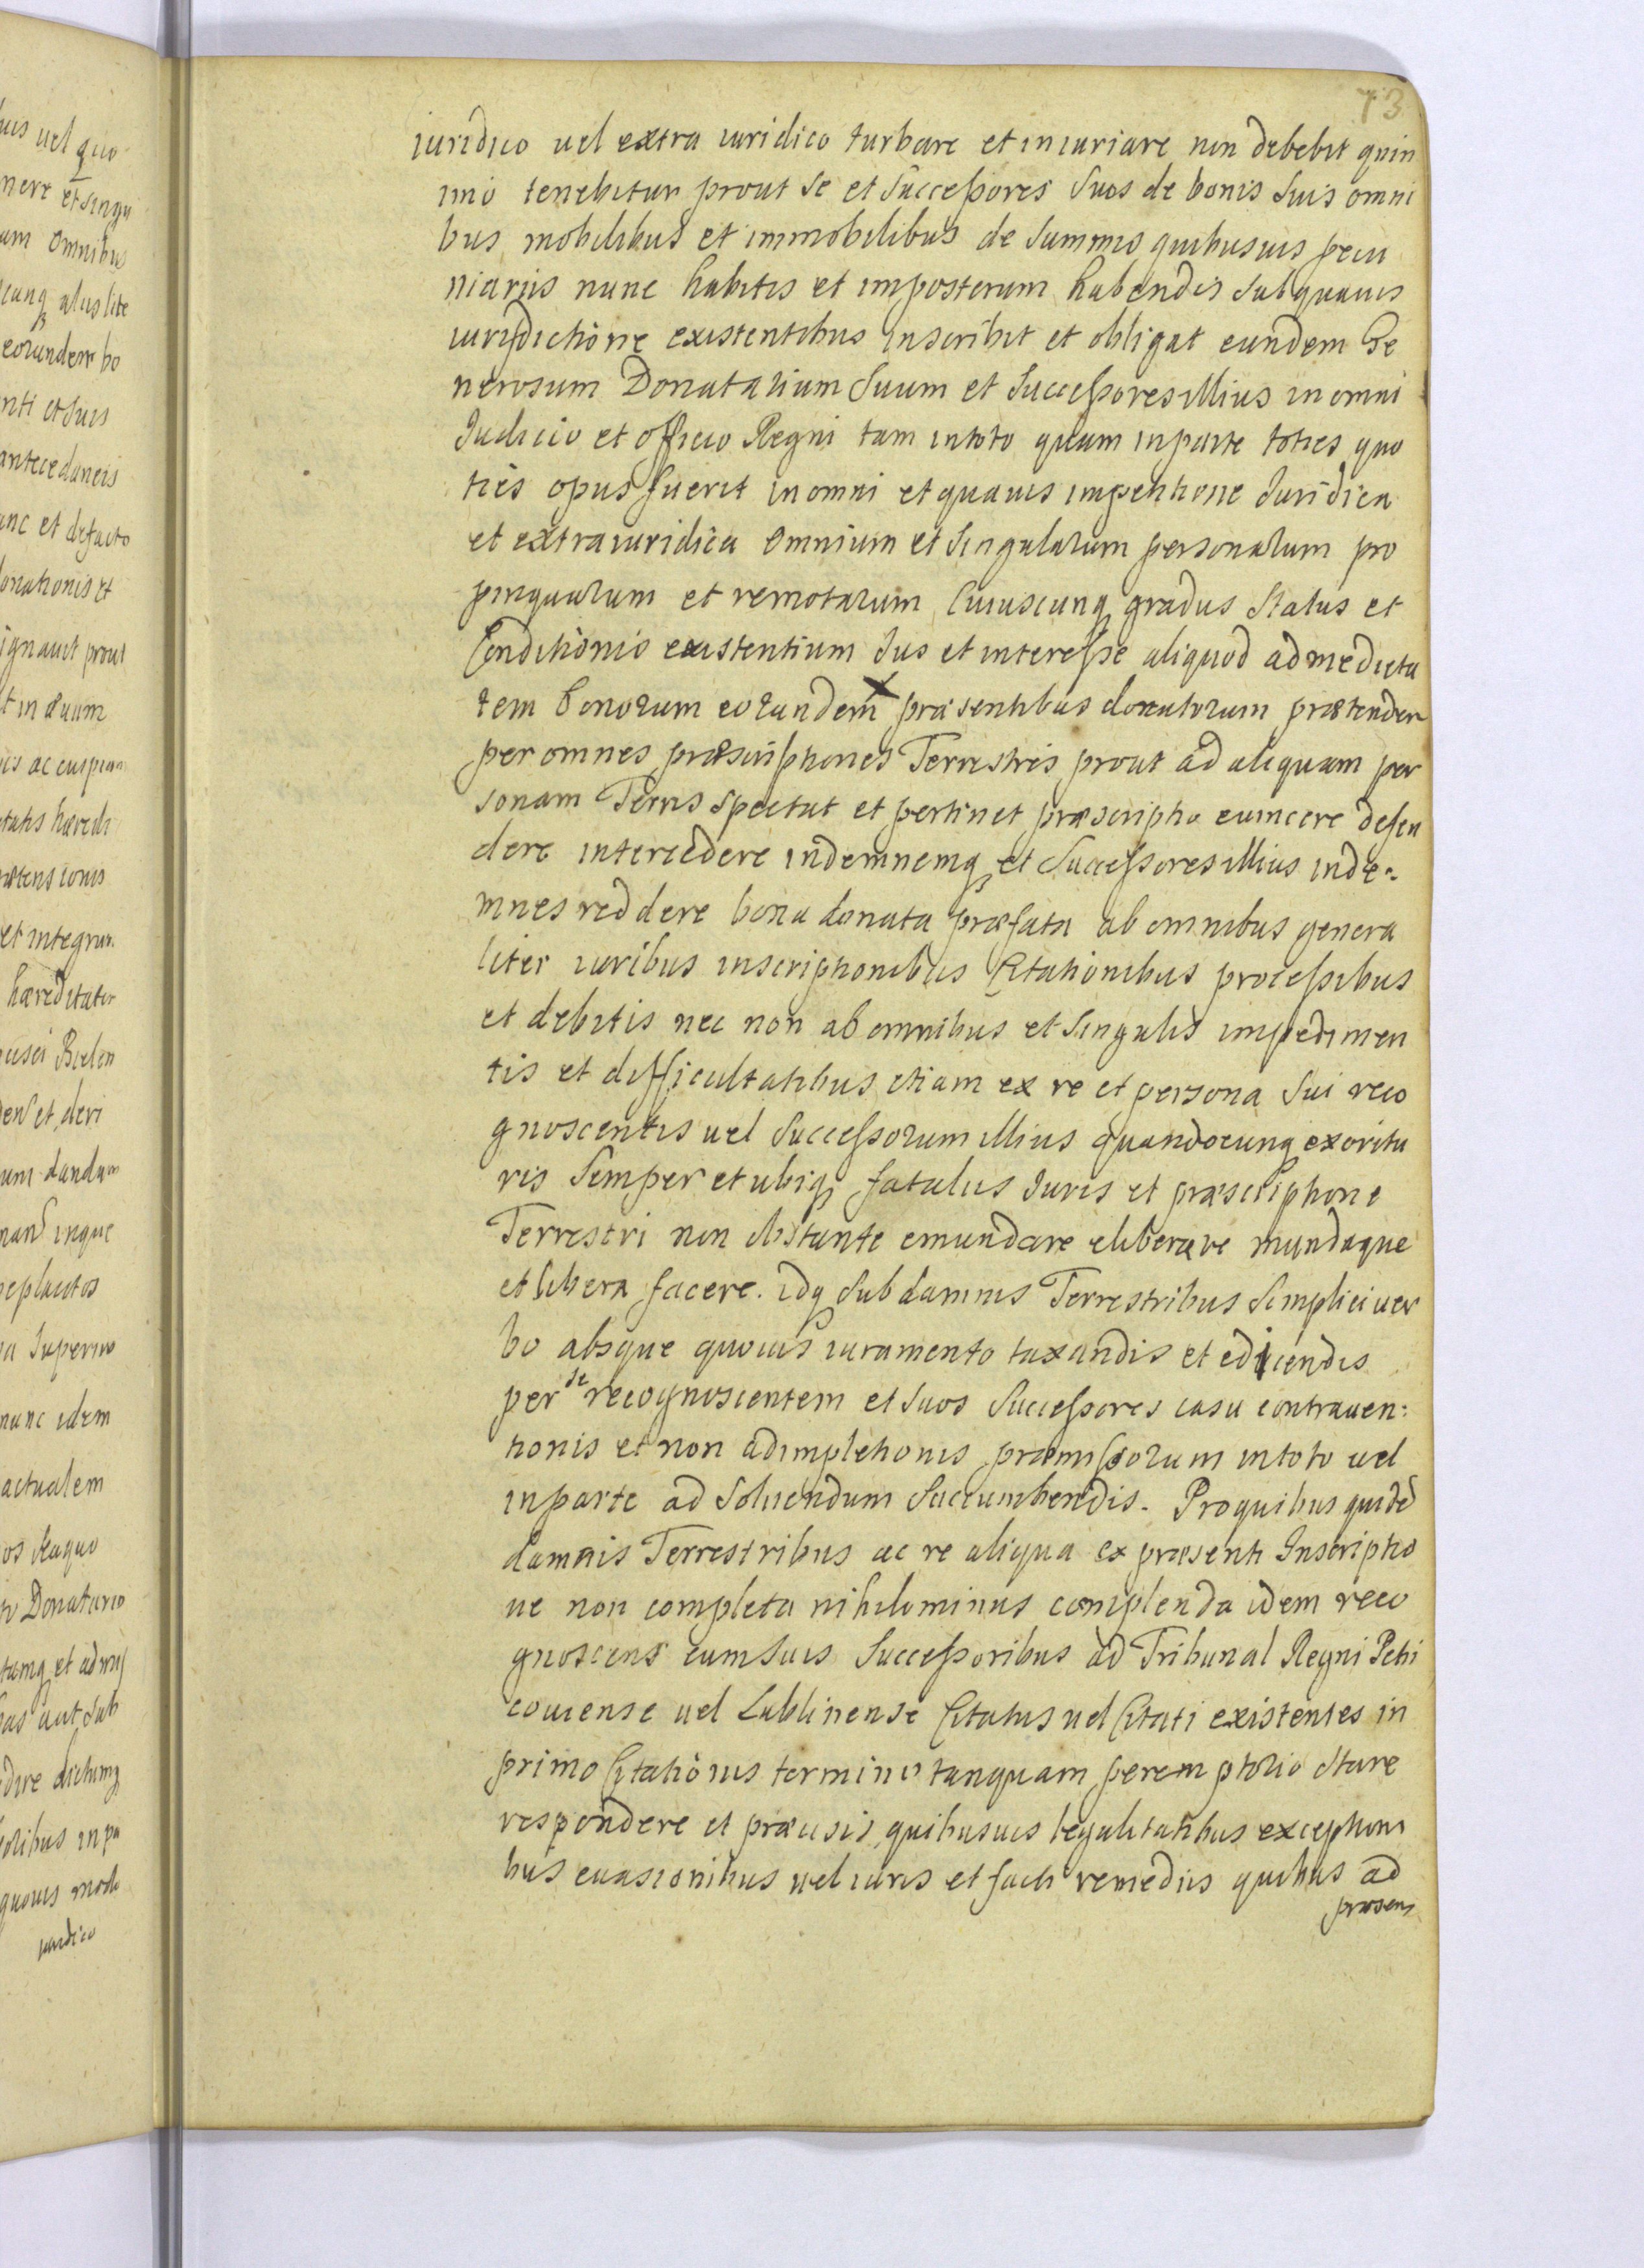 73
iuridico uel extra iuridico turbare et iniuriare non debebit quin
imo tenebitur prout se et Successores Suos de bonis Suis omni
bus mobilibus et immobilibus de Summis quibusuis pecu
niariis nunc habitis et imposterum habendis Sub quauis
iurisdictione existentibus inscribit et obligat eundem Ge
nerosum Donatarium Suum et Successores illius in omni
Iudicio et officio Regni tam in toto quam in parte toties quo
ties opus fuerit in omni et quauis impetitione Iuridica
et extraiuridica omnium et Singularum personarum pro
pinquarum et remotarum Cuiuscunq gradus Status et
Conditionis existentium Ius et interesse aliquod ad medieta
tem bonorum eorundem præsentibus donatorum prætender
per omnes præscriptiones Terrestris prout ad aliquam per
sonam Terris Spectat et pertinet præscriptio euincere defen
dere intercedere indemnemq et Successores illius inde-
mnes reddere bona donata præfata ab omnibus genera
liter iuribus inscriptionibus Citationibus processibus
et debitis nec non ab omnibus et Singulis impedimen
tis et difficultatibus etiam ex re et persona Sui reco
gnoscentis uel Successorum illius quandocunq exoritu
ris Semper et ubiq fatalus Iuris et præscriptione
Terrestri non obstante emundare eliberare mundaque
et libera facere. idq Sub damnis Terrestribus Simplici uer
bo absque quouis iuramento taxandis et edicendis
per se recognoscentem et Suos Successores casu contrauen:
tionis et non adimpletionis præmissorum in toto uel
in parte ad Soluendum Succumbendis. Pro quibus quidē
damnis Terrestribus ac re aliqua ex præsenti Inscriptio
ne non completa nihilominus complenda idem reco
gnoscens cum Suis Successoribus ad Tribunal Regni Petri
couiense uel Lublinense Citatus uel Citati existentes in
primo Citationis termino tanquam peremptorio Stare
respondere et præcisis quibusuis legalitatibus exceptioni
bus euasionibus uel iuris et facti remediis quibus ad
præsens